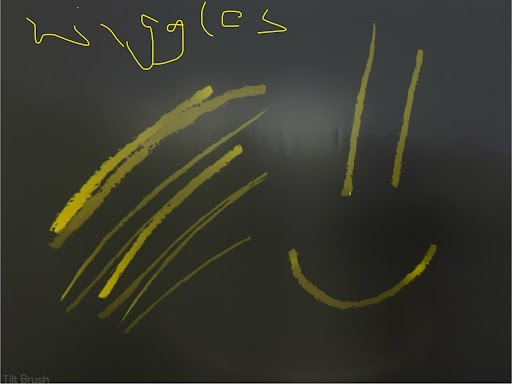 wiggles
Tilt Brush